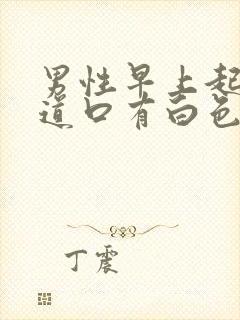 男性早上起
道口有白色
丁震